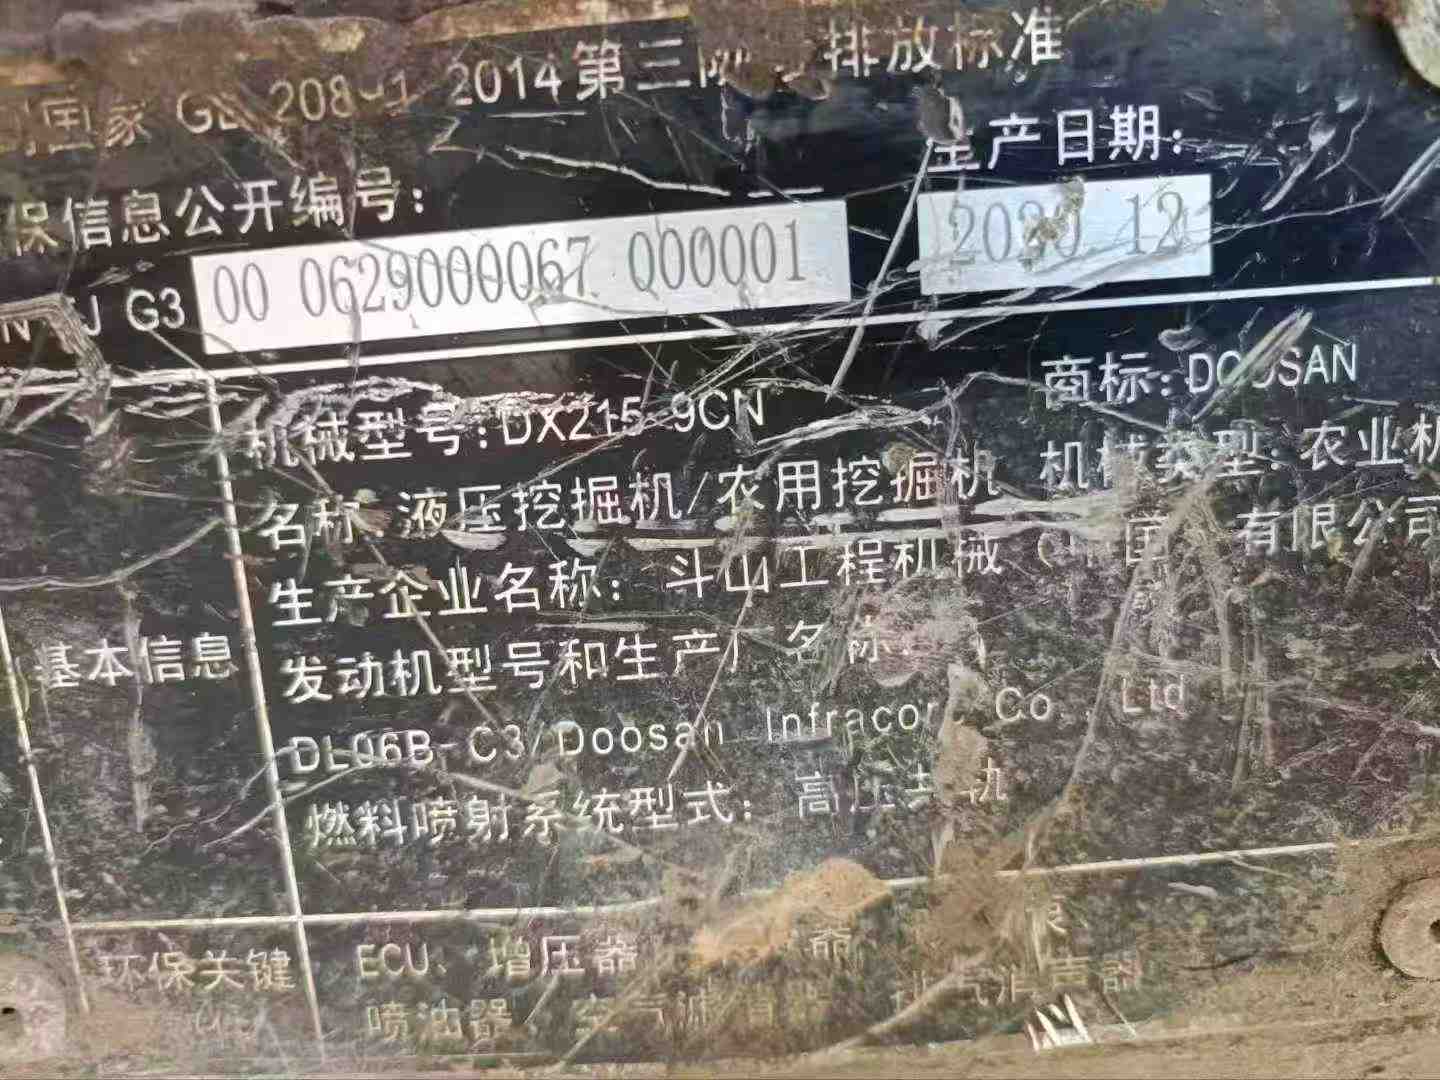 国家 GB 208 1 2014第三 排放标准
生产日期:
保信息公开编号:
2020 12
G3 00 0629000067 000001
机械型号:DX215 9CN
商标:DOOSAN
名称 液压挖掘机/农用挖掘机
机械类型:农业机
生产企业名称: 斗山工程机械 国 有限公司
基本信息
发动机型号和生产厂名称
DL06B-C3/Doosan Infracore Co Ltd
燃料喷射系统型式: 高压共轨
环保关键
ECU、增压器
喷油器 空气滤清器 排气消声器